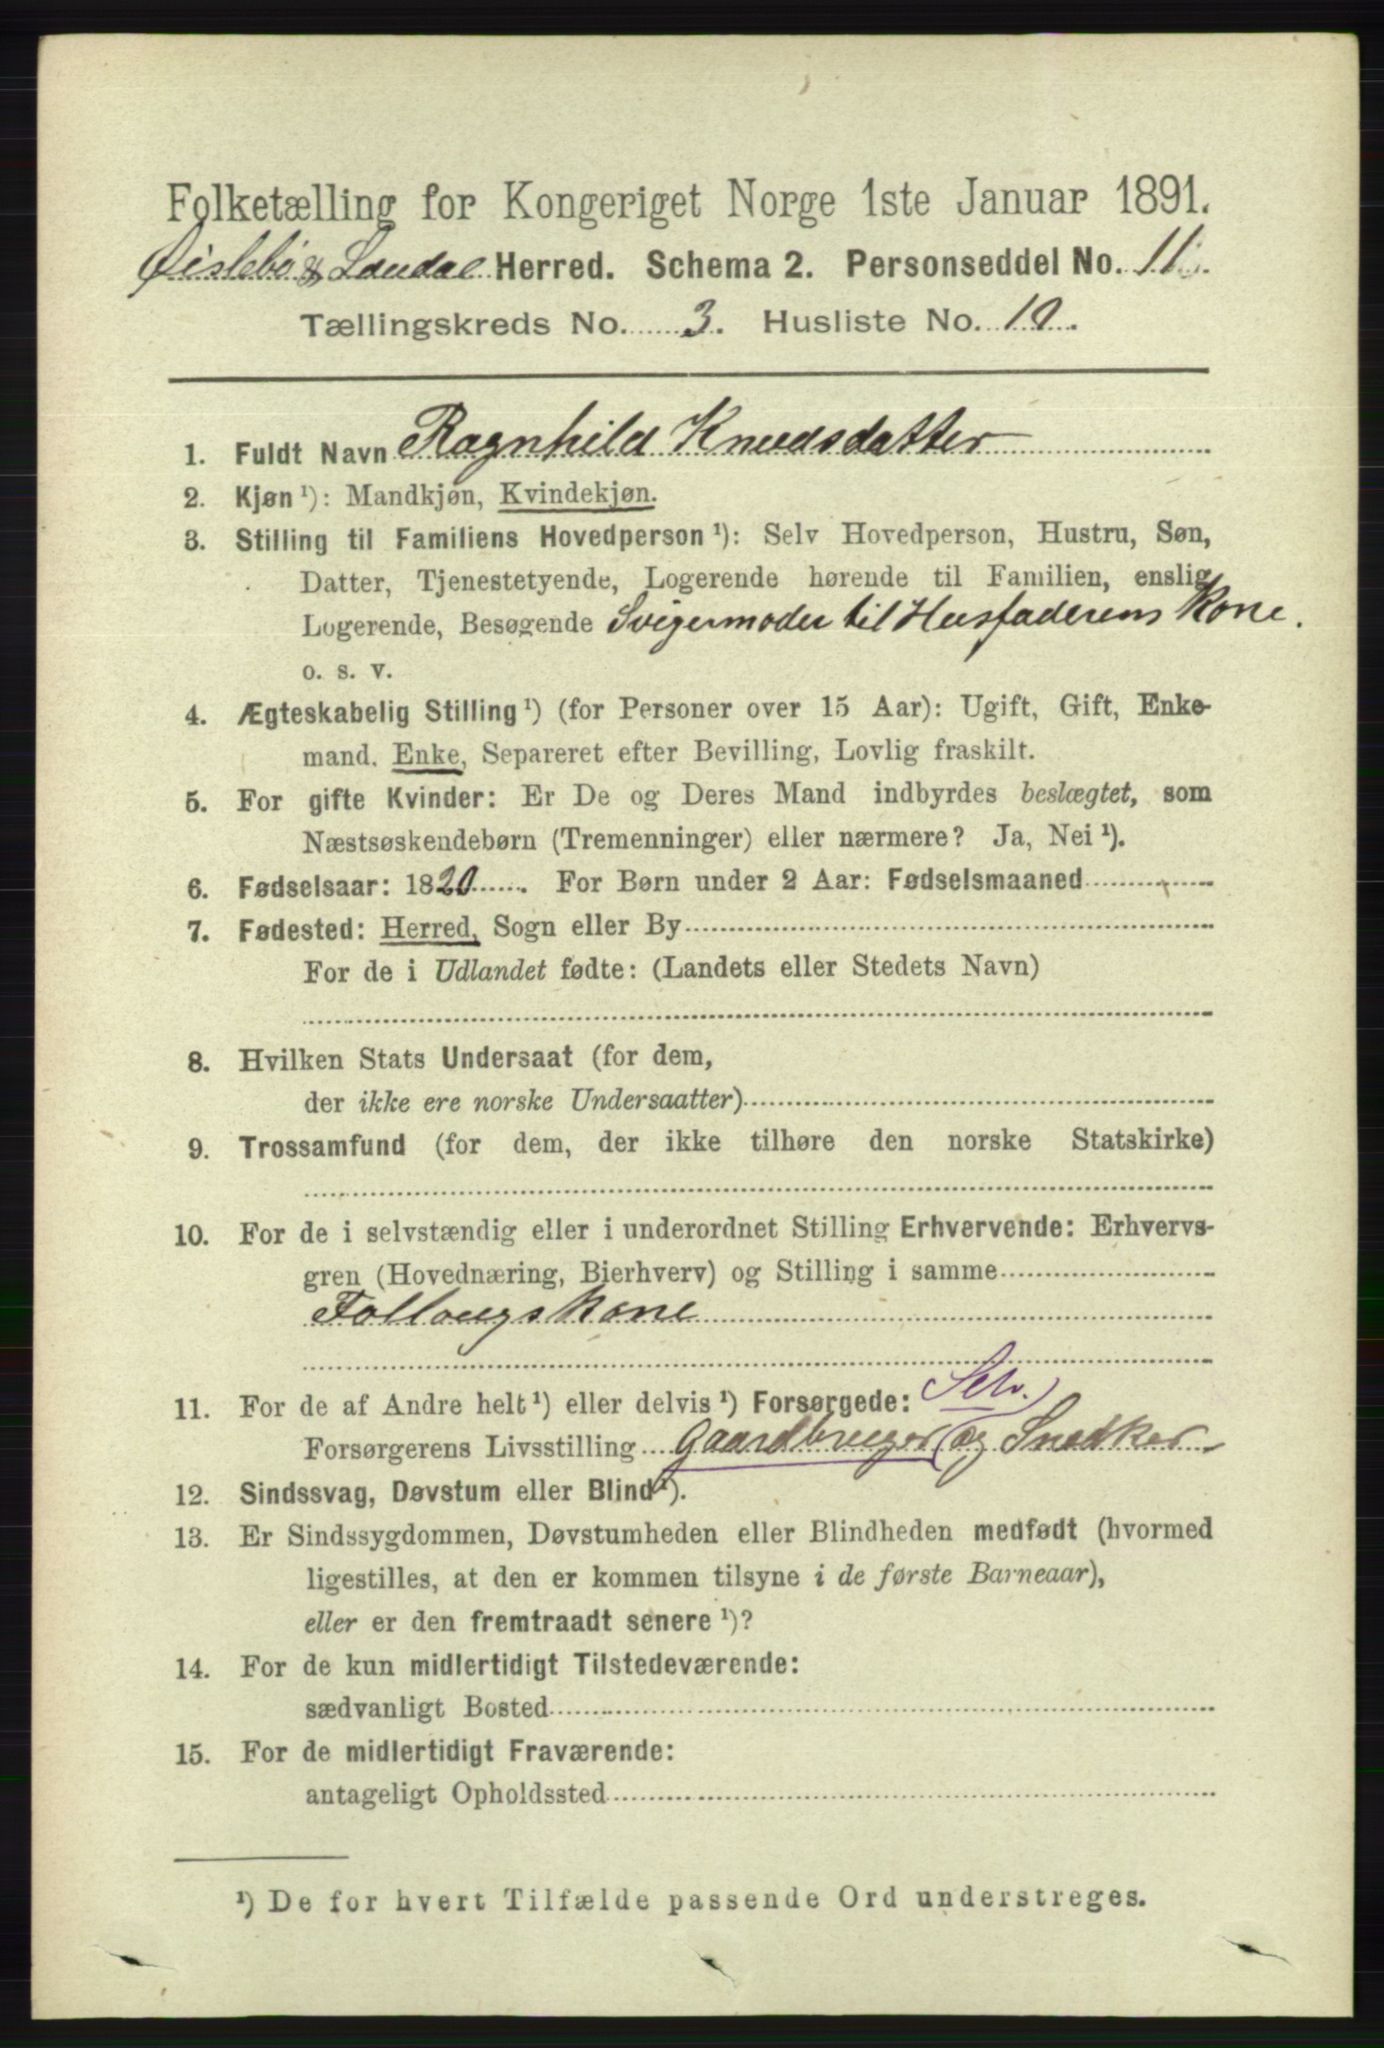 Folketælling for Kongeriget Norge 1ste Januar 1891.
Øislebø & Laudal Herred. Schema 2. Personseddel No. 11.
Tællingskreds No. 3. Husliste No. 10.
1. Fuldt Navn Ragnhild Knudsdatter
2. Kjøn ¹): Mandkjøn, Kvindekjøn.
3. Stilling til Familiens Hovedperson ¹): Selv Hovedperson, Hustru, Søn,
Datter, Tjenestetyende, Logerende hørende til Familien, enslig
Logerende, Besøgende Svigermoder til Husfaderens Kone.
o. s. v.
4. Ægteskabelig Stilling ¹) (for Personer over 15 Aar): Ugift, Gift, Enke-
mand, Enke, Separeret efter Bevilling, Lovlig fraskilt.
5. For gifte Kvinder: Er De og Deres Mand indbyrdes beslægtet, som
Næstsøskendebørn (Tremenninger) eller nærmere? Ja, Nei ¹).
6. Fødselsaar: 1820. For Børn under 2 Aar: Fødselsmaaned
7. Fødested: Herred, Sogn eller By
For de i Udlandet fødte: (Landets eller Stedets Navn)
8. Hvilken Stats Undersaat (for dem,
der ikke ere norske Undersaatter)
9. Trossamfund (for dem, der ikke tilhøre den norske Statskirke)
10. For de i selvstændig eller i underordnet Stilling Erhvervende: Erhvervs-
gren (Hovednæring, Bierhverv) og Stilling i samme
Follaugskone
11. For de af Andre helt ¹) eller delvis ¹) Forsørgede: Selv.
Forsørgerens Livsstilling Gaardbruger (og Snedker
12. Sindssvag, Døvstum eller Blind ¹).
13. Er Sindssygdommen, Døvstumheden eller Blindheden medfødt (hvormed
ligestilles, at den er kommen tilsyne i de første Barneaar),
eller er den fremtraadt senere ¹)?
14. For de kun midlertidigt Tilstedeværende:
sædvanligt Bosted
15. For de midlertidigt Fraværende:
antageligt Opholdssted
¹) De for hvert Tilfælde passende Ord understreges.